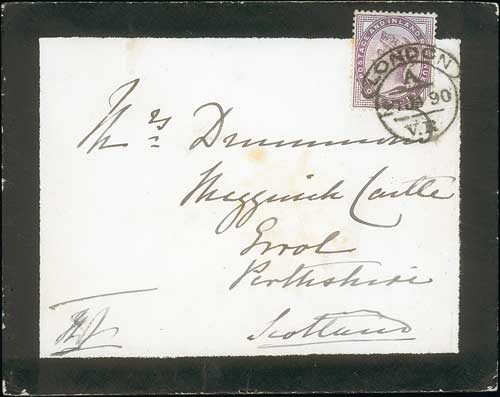 POSTAGE AND INLAND REVENUE
LONDON
A
90
V.R
Mrs Drummond
Megginch Castle
Errol
Perthshire
Scotland